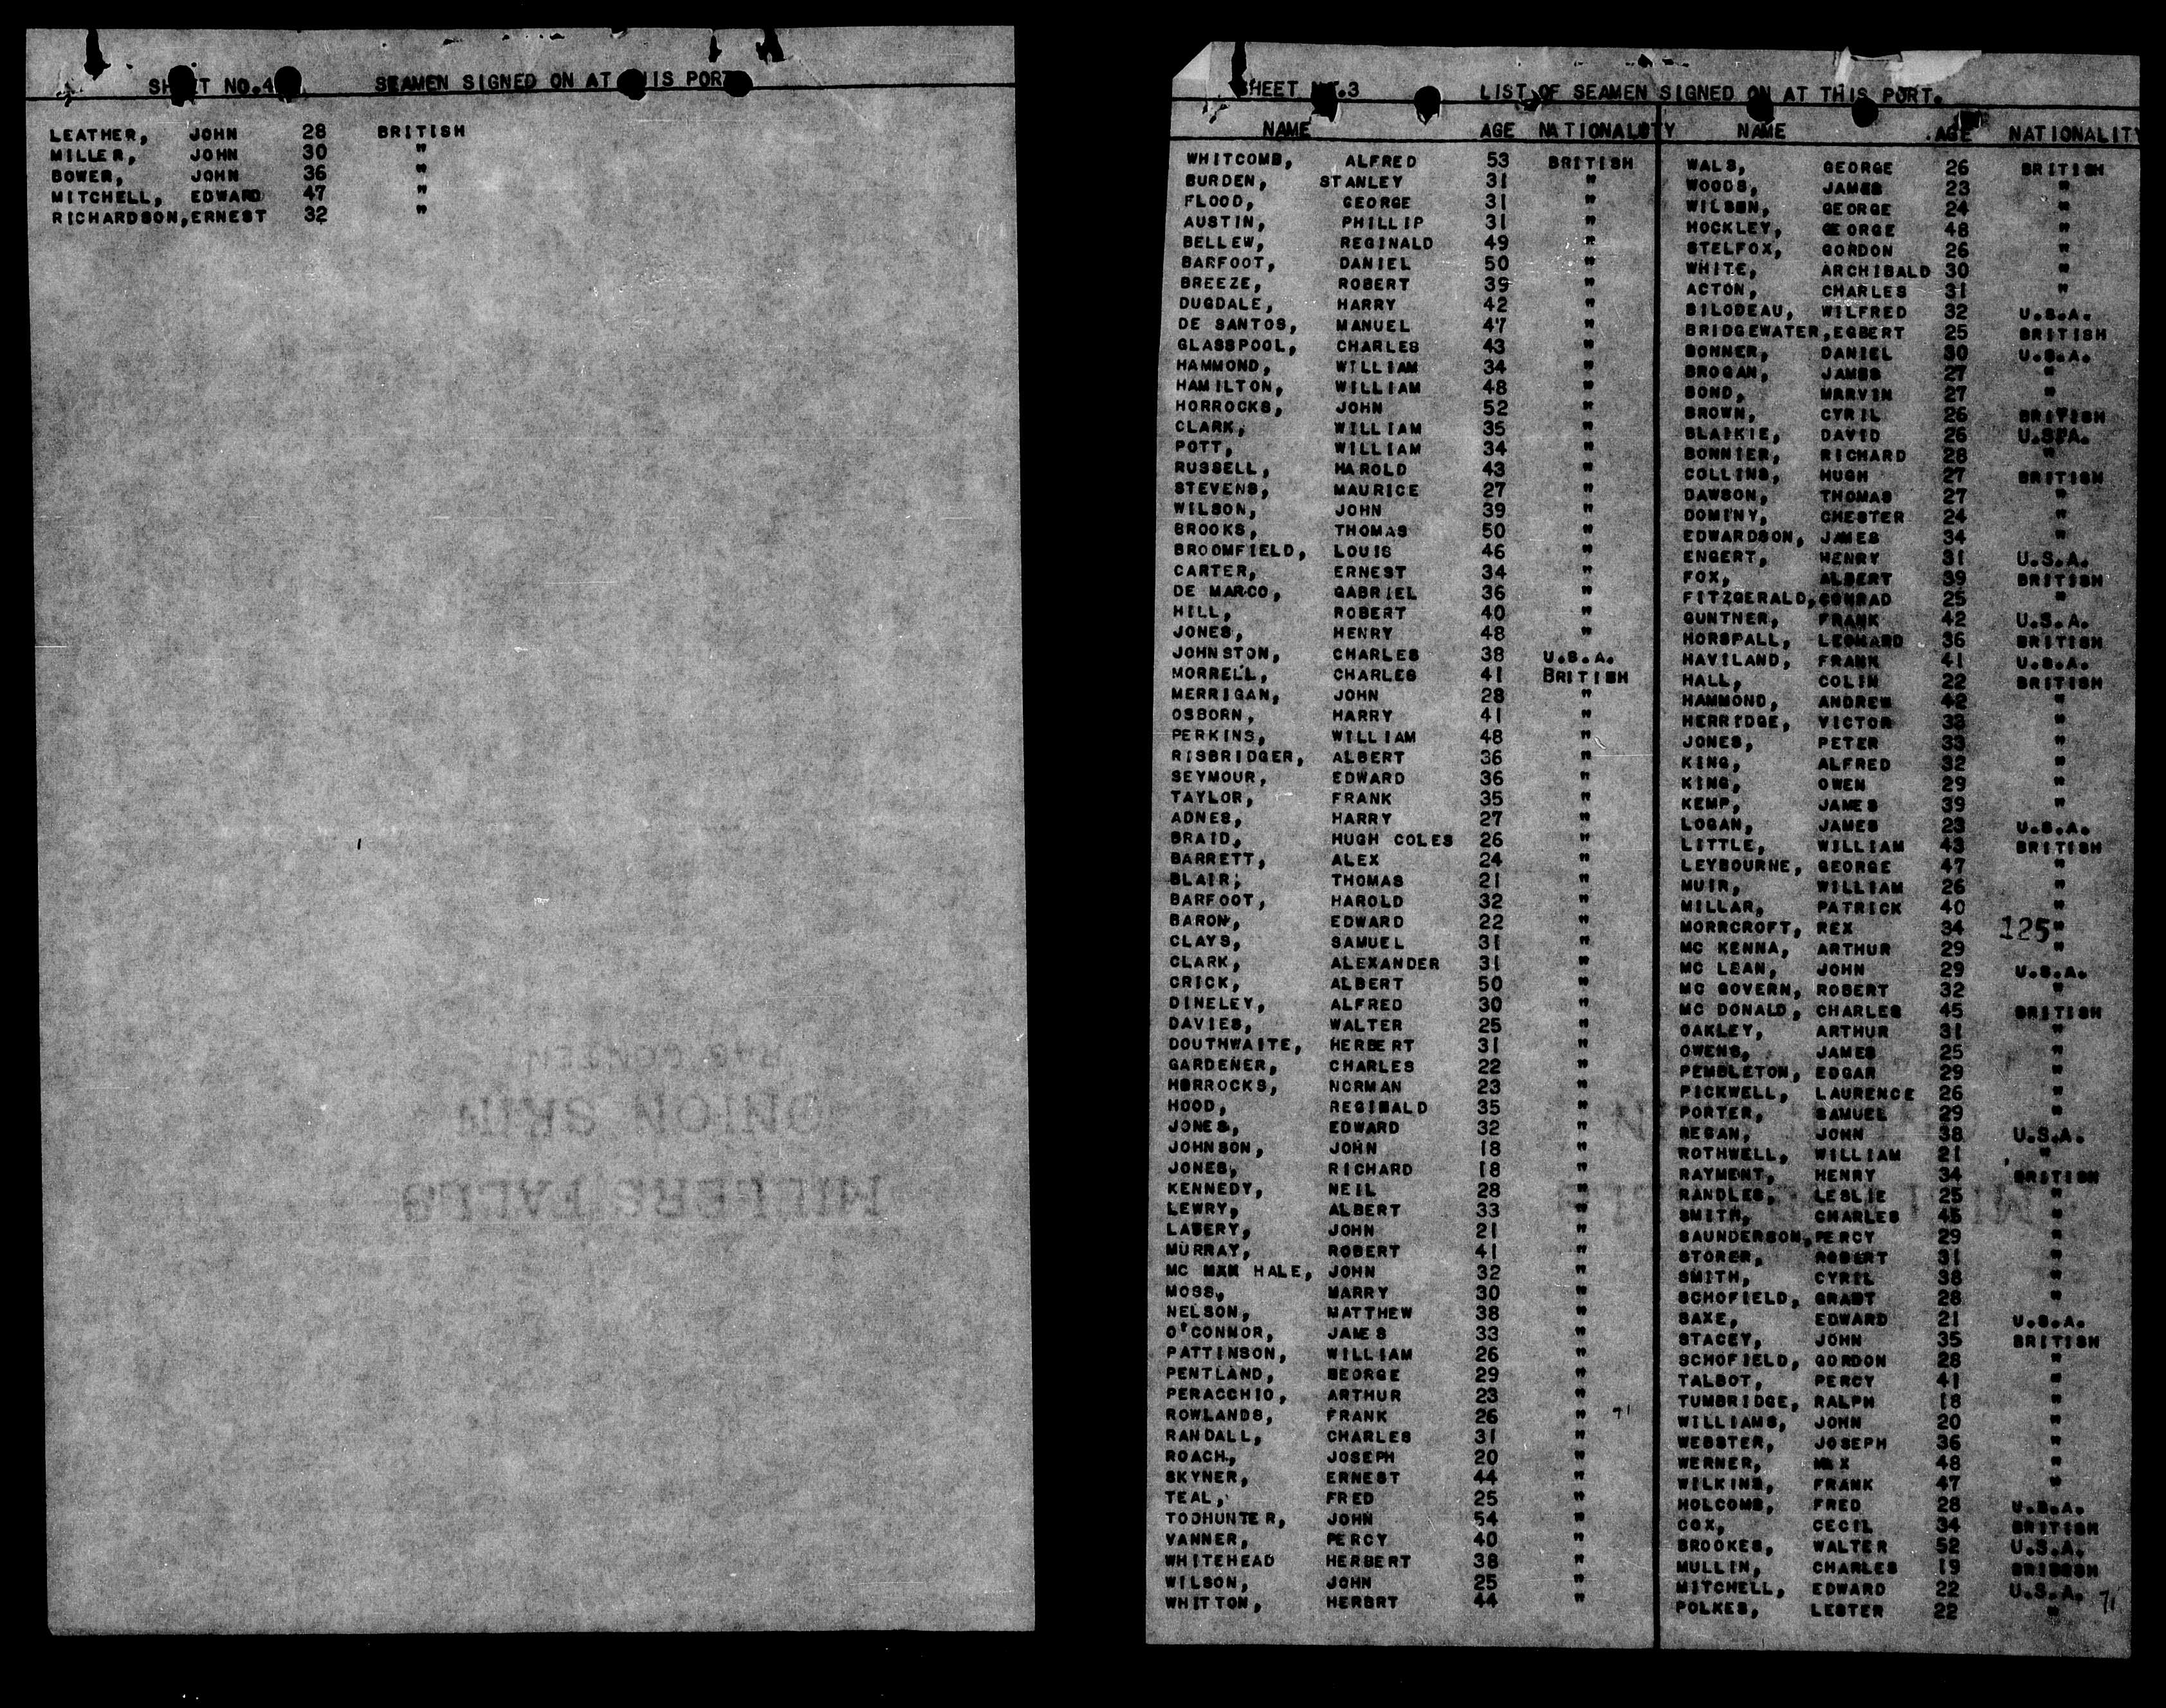 SHEET NO.4 SEAMEN SIGNED ON AT THIS PORT
LEATHER, JOHN 28 BRITISH
MILLER, JOHN 30 "
BOWER, JOHN 36 "
MITCHELL, EDWARD 47 "
RICHARDSON, ERNEST 32 "
ONION SKIN
MILLERS FALLS
SHEET .3 LIST OF SEAMEN SIGNED ON AT THIS PORT.
NAME AGE NATIONALITY
WHITCOMB, ALFRED 53 BRITISH
BURDEN, STANLEY 31 "
FLOOD, GEORGE 31 "
AUSTIN, PHILLIP 31 "
BELLEW, REGINALD 49 "
BARFOOT, DANIEL 50 "
BREEZE, ROBERT 39 "
DUGDALE, HARRY 42 "
DE SANTOS, MANUEL 47 "
GLASSPOOL, CHARLES 43 "
HAMMOND, WILLIAM 34 "
HAMILTON, WILLIAM 48 "
HORROCKS, JOHN 52 "
CLARK, WILLIAM 35 "
POTT, WILLIAM 34 "
RUSSELL, HAROLD 43 "
STEVENS, MAURICE 27 "
WILSON, JOHN 39 "
BROOKS, THOMAS 50 "
BROOMFIELD, LOUIS 46 "
CARTER, ERNEST 34 "
DE MARCO, GABRIEL 36 "
HILL, ROBERT 40 "
JONES, HENRY 48 "
JOHNSTON, CHARLES 38 U.S.A.
MORRELL, CHARLES 41 BRITISH
MERRIGAN, JOHN 28 "
OSBORN, HARRY 41 "
PERKINS, WILLIAM 48 "
RISBRIDGER, ALBERT 36 "
SEYMOUR, EDWARD 36 "
TAYLOR, FRANK 35 "
ADNES, HARRY 27 "
BRAID, HUGH COLES 26 "
BARRETT, ALEX 24 "
BLAIR, THOMAS 21 "
BARFOOT, HAROLD 32 "
BARON, EDWARD 22 "
CLAYS, SAMUEL 31 "
CLARK, ALEXANDER 31 "
CRICK, ALBERT 50 "
DINELEY, ALFRED 30 "
DAVIES, WALTER 25 "
DOUTHWAITE, HERBERT 31 "
GARDENER, CHARLES 22 "
HORROCKS, NORMAN 23 "
HOOD, REGINALD 35 "
JONES, EDWARD 32 "
JOHNSON, JOHN 18 "
JONES, RICHARD 18 "
KENNEDY, NEIL 28 "
LEWRY, ALBERT 33 "
LABERY, JOHN 21 "
MURRAY, ROBERT 41 "
MC MAN HALE, JOHN 32 "
MOSS, HARRY 30 "
NELSON, MATTHEW 38 "
O'CONNOR, JAMES 33 "
PATTINSON, WILLIAM 26 "
PENTLAND, GEORGE 29 "
PERACCHIO, ARTHUR 23 "
ROWLANDS, FRANK 26 " 71
RANDALL, CHARLES 31 "
ROACH, JOSEPH 20 "
SKYNER, ERNEST 44 "
TEAL, FRED 25 "
TODHUNTER, JOHN 54 "
VANNER, PERCY 40 "
WHITEHEAD HERBERT 38 "
WILSON, JOHN 25 "
WHITTON, HERBRT 44 "
NAME AGE NATIONALITY
WALS, GEORGE 26 BRITISH
WOODS, JAMES 23 "
WILSON, GEORGE 24 "
HOCKLEY, GEORGE 48 "
STELFOX, GORDON 26 "
WHITE, ARCHIBALD 30 "
ACTON, CHARLES 31 "
BILODEAU, WILFRED 32 U.S.A.
BRIDGEWATER, EGBERT 25 BRITISH
BONNER, DANIEL 30 U.S.A.
BROGAN, JAMES 27 "
BOND, MARVIN 27 "
BROWN, CYRIL 26 BRITISH
BLAIKIE, DAVID 26 U.S.A.
BONNIER, RICHARD 28 "
COLLINS, HUGH 27 BRITISH
DAWSON, THOMAS 27 "
DOMINY, CHESTER 24 "
EDWARDSON, JAMES 34 "
ENGERT, HENRY 31 U.S.A.
FOX, ALBERT 39 BRITISH
FITZGERALD, CONRAD 25 "
GUNTNER, FRANK 42 U.S.A.
HORSFALL, LEONARD 36 BRITISH
HAVILAND, FRANK 41 U.S.A.
HALL, COLIN 22 BRITISH
HAMMOND, ANDREW 42 "
HERRIDGE, VICTOR 33 "
JONES, PETER 33 "
KING, ALFRED 32 "
KING, OWEN 29 "
KEMP, JAMES 39 "
LOGAN, JAMES 23 U.S.A.
LITTLE, WILLIAM 43 BRITISH
LEYBOURNE, GEORGE 47 "
MUIR, WILLIAM 26 "
MILLAR, PATRICK 40 "
MORRCROFT, REX 34 125 "
MC KENNA, ARTHUR 29 "
MC LEAN, JOHN 29 U.S.A.
MC GOVERN, ROBERT 32 "
MC DONALD, CHARLES 45 BRITISH
OAKLEY, ARTHUR 31 "
OWENS, JAMES 25 "
PEMBLETON, EDGAR 29 "
PICKWELL, LAURENCE 26 "
PORTER, SAMUEL 29 "
REGAN, JOHN 38 U.S.A.
ROTHWELL, WILLIAM 21 "
RAYMENT, HENRY 34 BRITISH
RANDLES, LESLIE 25 "
SMITH, CHARLES 45 "
SAUNDERSON, PERCY 29 "
STORER, ROBERT 31 "
SMITH, CYRIL 38 "
SCHOFIELD, GRANT 28 "
SAXE, EDWARD 21 U.S.A.
STACEY, JOHN 35 BRITISH
SCHOFIELD, GORDON 28 "
TALBOT, PERCY 41 "
TUMBRIDGE, RALPH 18 "
WILLIAMS, JOHN 20 "
WEBSTER, JOSEPH 36 "
WERNER, MAX 48 "
WILKINS, FRANK 47 "
HOLCOMB, FRED 28 U.S.A.
COX, CECIL 34 BRITISH
BROOKES, WALTER 52 U.S.A.
MULLIN, CHARLES 19 BRITISH
MITCHELL, EDWARD 22 U.S.A.
POLKES, LESTER 22 " 71